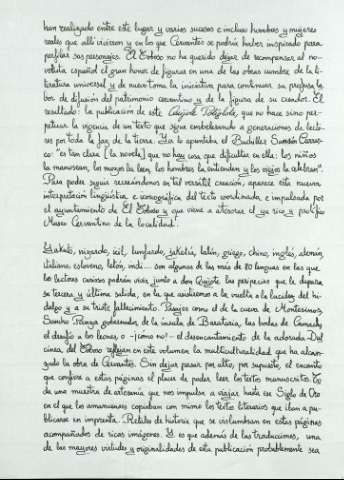 han realizado entre este lugar y varios sucesos e incluso hombres y mujeres
reales que allí vivieron y en los que Cervantes se podría haber inspirado para
perfilar sus personajes. El Toboso no ha querido dejar de recompensar al no-
velista español el gran honor de figurar en una de las obras cumbre de la li-
teratura universal y de nuevo toma la iniciativa para continuar su prolija la-
bor de difusión del patrimonio cervantino y de la figura de su creador. El
resultado: la publicación de este Quijote Políglota, que no hace sino per-
petuar la vigencia de un texto que sigue embelesando a generaciones de lecto-
res por toda la faz de la tierra. Ya lo apuntaba el Bachiller Sansón Carras-
co: "es tan clara (la novela) que no hay cosa que dificultar en ella: los niños
la manosean, los mozos la leen, los hombres la entienden y los viejos la celebran".
Para poder seguir recreándonos en tal versátil creación, aparece esta nueva
interpretación lingüística e iconográfica del texto coordinada e impulsada por
el ayuntamiento de El Toboso y que viene a atesorar el ya rico y prolijo
Museo Cervantino de la localidad.
nizardo, lunfardo, latín, griego, chino, inglés, alemán,
italiano, esloveno, letón, indi... son algunas de las más de 80 lenguas en las que
los lectores curiosos podrán vivir junto a don Quijote las peripecias que le depara
su tercera y última salida, en la que asistiremos a la vuelta a la lucidez del hi-
dalgo y a su triste fallecimiento. Pasajes como el de la cueva de Montesinos,
Sancho Panza gobernador de la ínsula de Barataria, las bodas de Camacho,
el desafío a los leones o -¡cómo no!- el desencantamiento de la adorada Dul-
cinea del Toboso reflejan en este volumen la multiculturalidad que ha alcan-
zado la obra de Cervantes. Sin dejar pasar por alto, por supuesto, el encanto
que confiere a estas páginas el placer de poder leer los textos manuscritos. To-
da una muestra de artesanía que nos impulsa a viajar hasta su Siglo de Oro
en el que los amanuenses copiaban con mimo los textos literarios que iban a pu-
blicarse en imprenta. Retales de historia que se vislumbran en estas páginas
acompañados de ricas imágenes. Y es que además de las traducciones, una
de las mayores virtudes y originalidades de esta publicación probablemente sea